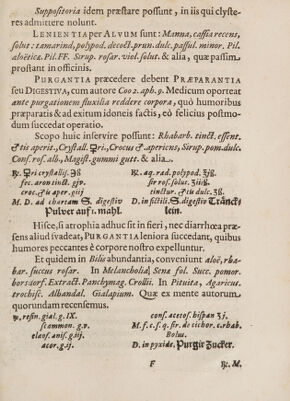 Suppositoria idem præstare possunt, in iis qui clyste-
res admittere nolunt.
LENIENTIA per ALVUM sunt: Manna, cassia recens,
solut: tamarind, polypod. decoct. prun. dulc. passul. minor. Pil.
aloëticæ. Pil. FF. Syrup. rosar. viol. solut. & alia, quæ passim
prostant in officinis.
PURGANTIA præcedere debent PRÆPARANTIA
seu DIGESTIVA, cum autore Coo 2. aph. 9. Medicum oporteat
ante purgationem fluxilia reddere corpora, quò humoribus
præparatis & ad exitum idoneis factis, eò felicius postmo-
dum succedat operatio.
Scopo huic inservire possunt: Rhabarb. tinct. essent.
♂tis aperit., Crystall. ♀ri, Crocus ♂ aperiens, Sirup. pom. dulc.
Conf. ros. alb, Magist. gummi gutt. & alia.
℞. ♀ri crystallis. ℨß
fec. aron tinct. gjv
croc. ♂tis aper. giij
M. D. ad chartam S. digestiv
Pulver auf 1. mahl.
℞. aq. rad. polypod. ℥jß.
sir ros. solut. ℥iiß.
tinct. ♂tis digest. ℥ß.
M. D. in fictili, S. digestiv Tränck-
lein.
Hisce, si atrophia adhuc sit in fieri, nec diarrhœa præ-
sens aliud svadeat, PURGANTIA leniora succedant, quibus
humores peccantes è corpore nostro expelluntur.
Et quidem in Bilis abundantia, conveniunt aloë, rha-
bar. succus rosar. In Melancholia, Sena fol. Succ. pomor.
borsdorf. Extract. Panchymag. Crollii. In Pituita, Agaricus.
trochisc. Alhandal. Gialapium. Quæ ex mente autorum
quorundam recensemus.
℞. resin. gial. g. IX.
scammon. g. v.
elæos. anis. g. iij
acor. g. ij.
cons. acetos. hispan ℨj.
M. f. c. s. q. sir. de cichor. c. rhab.
Bolus.
D. in pyxide. Purgir Zucker.
F
℞. M.